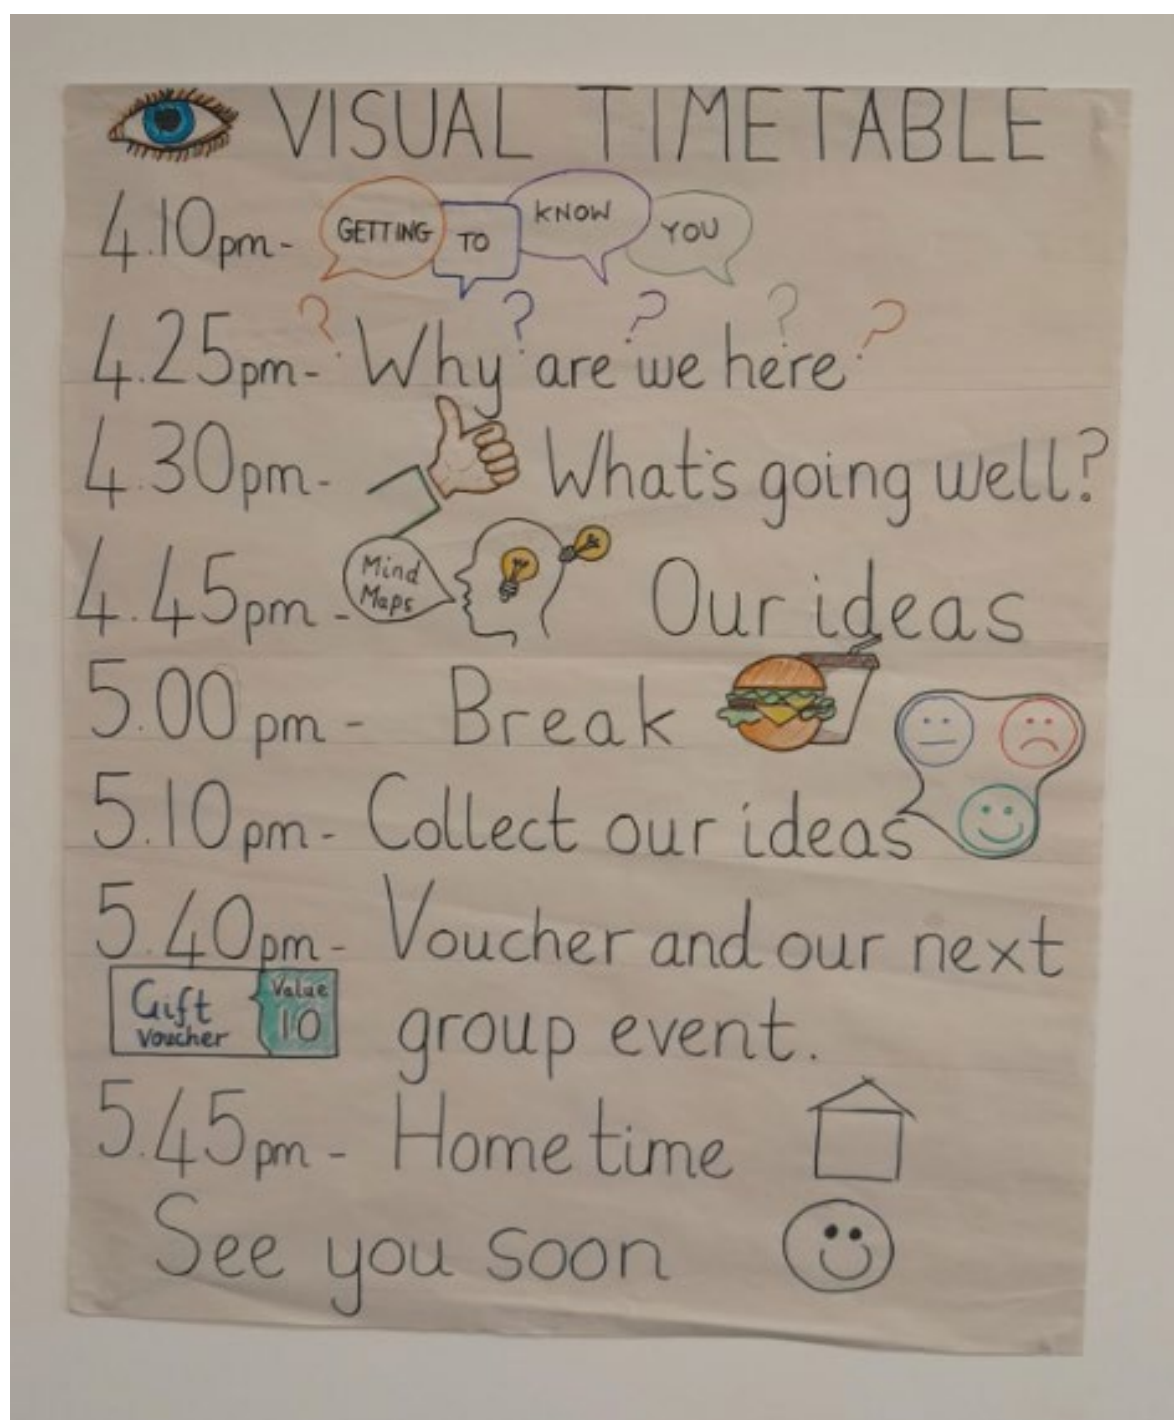 VISUAL TIMETABLE
4.10pm- GETTING TO KNOW YOU
4.25pm- ? Why ? are ? we here ? ?
4.30pm- What's going well?
4.45pm - Mind Maps Our ideas
5.00pm - Break
5.10pm - Collect our ideas
5.40pm - Voucher and our next
Gift Voucher Value 10 group event.
5.45pm - Home time
See you soon